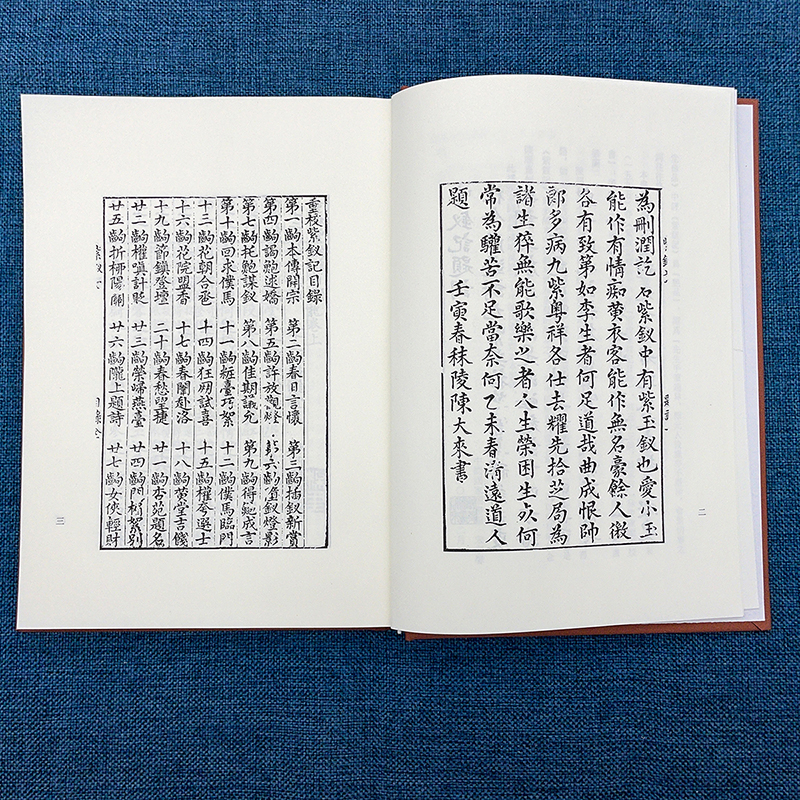 為刪潤訖名紫釵中有紫玉釵也愛小玉
能作有情痴黃衣客能作無名豪餘人微
各有致第如李生者何足道哉曲成恨帥
郎多病九紫粵祥各仕去耀先拾芝局為
諸生猝無能歌樂之者人生榮困生死何
常為驩苦不足當奈何乙未春清遠道人
題 壬寅春秣陵陳大來書
二
重校紫釵記目錄
第一齣本傳開宗 第二齣春日言懷 第三齣插釵新賞
第四齣謁鮑述嬌 第五齣許放觀燈 第六齣墮釵燈影
第七齣托鮑謀釵 第八齣佳期議允 第九齣得鮑成言
第十齣回求僕馬 十一齣粧臺巧絮 十二齣僕馬臨門
十三齣花朝合巹 十四齣狂朋試喜 十五齣權夸選士
十六齣花院盟香 十七齣春闈赴洛 十八齣黃堂言餞
十九齣節鎮登壇 二十齣春愁望捷 廿一齣杏苑題名
廿二齣權嗔計貶 廿三齣榮歸燕臺 廿四齣門楣絮別
廿五齣折柳陽關 廿六齣隴上題詩 廿七齣女俠輕財
三